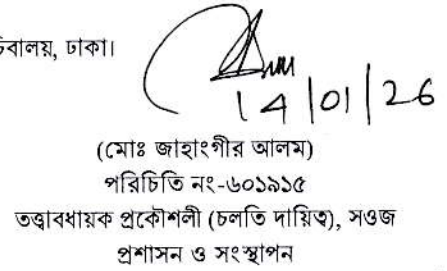 চিবালয়, ঢাকা।
14/01/26
(মোঃ জাহাংগীর আলম)
পরিচিতি নং-৬০১৯১৫
তত্ত্বাবধায়ক প্রকৌশলী (চলতি দায়িত্ব), সওজ
প্রশাসন ও সংস্থাপন